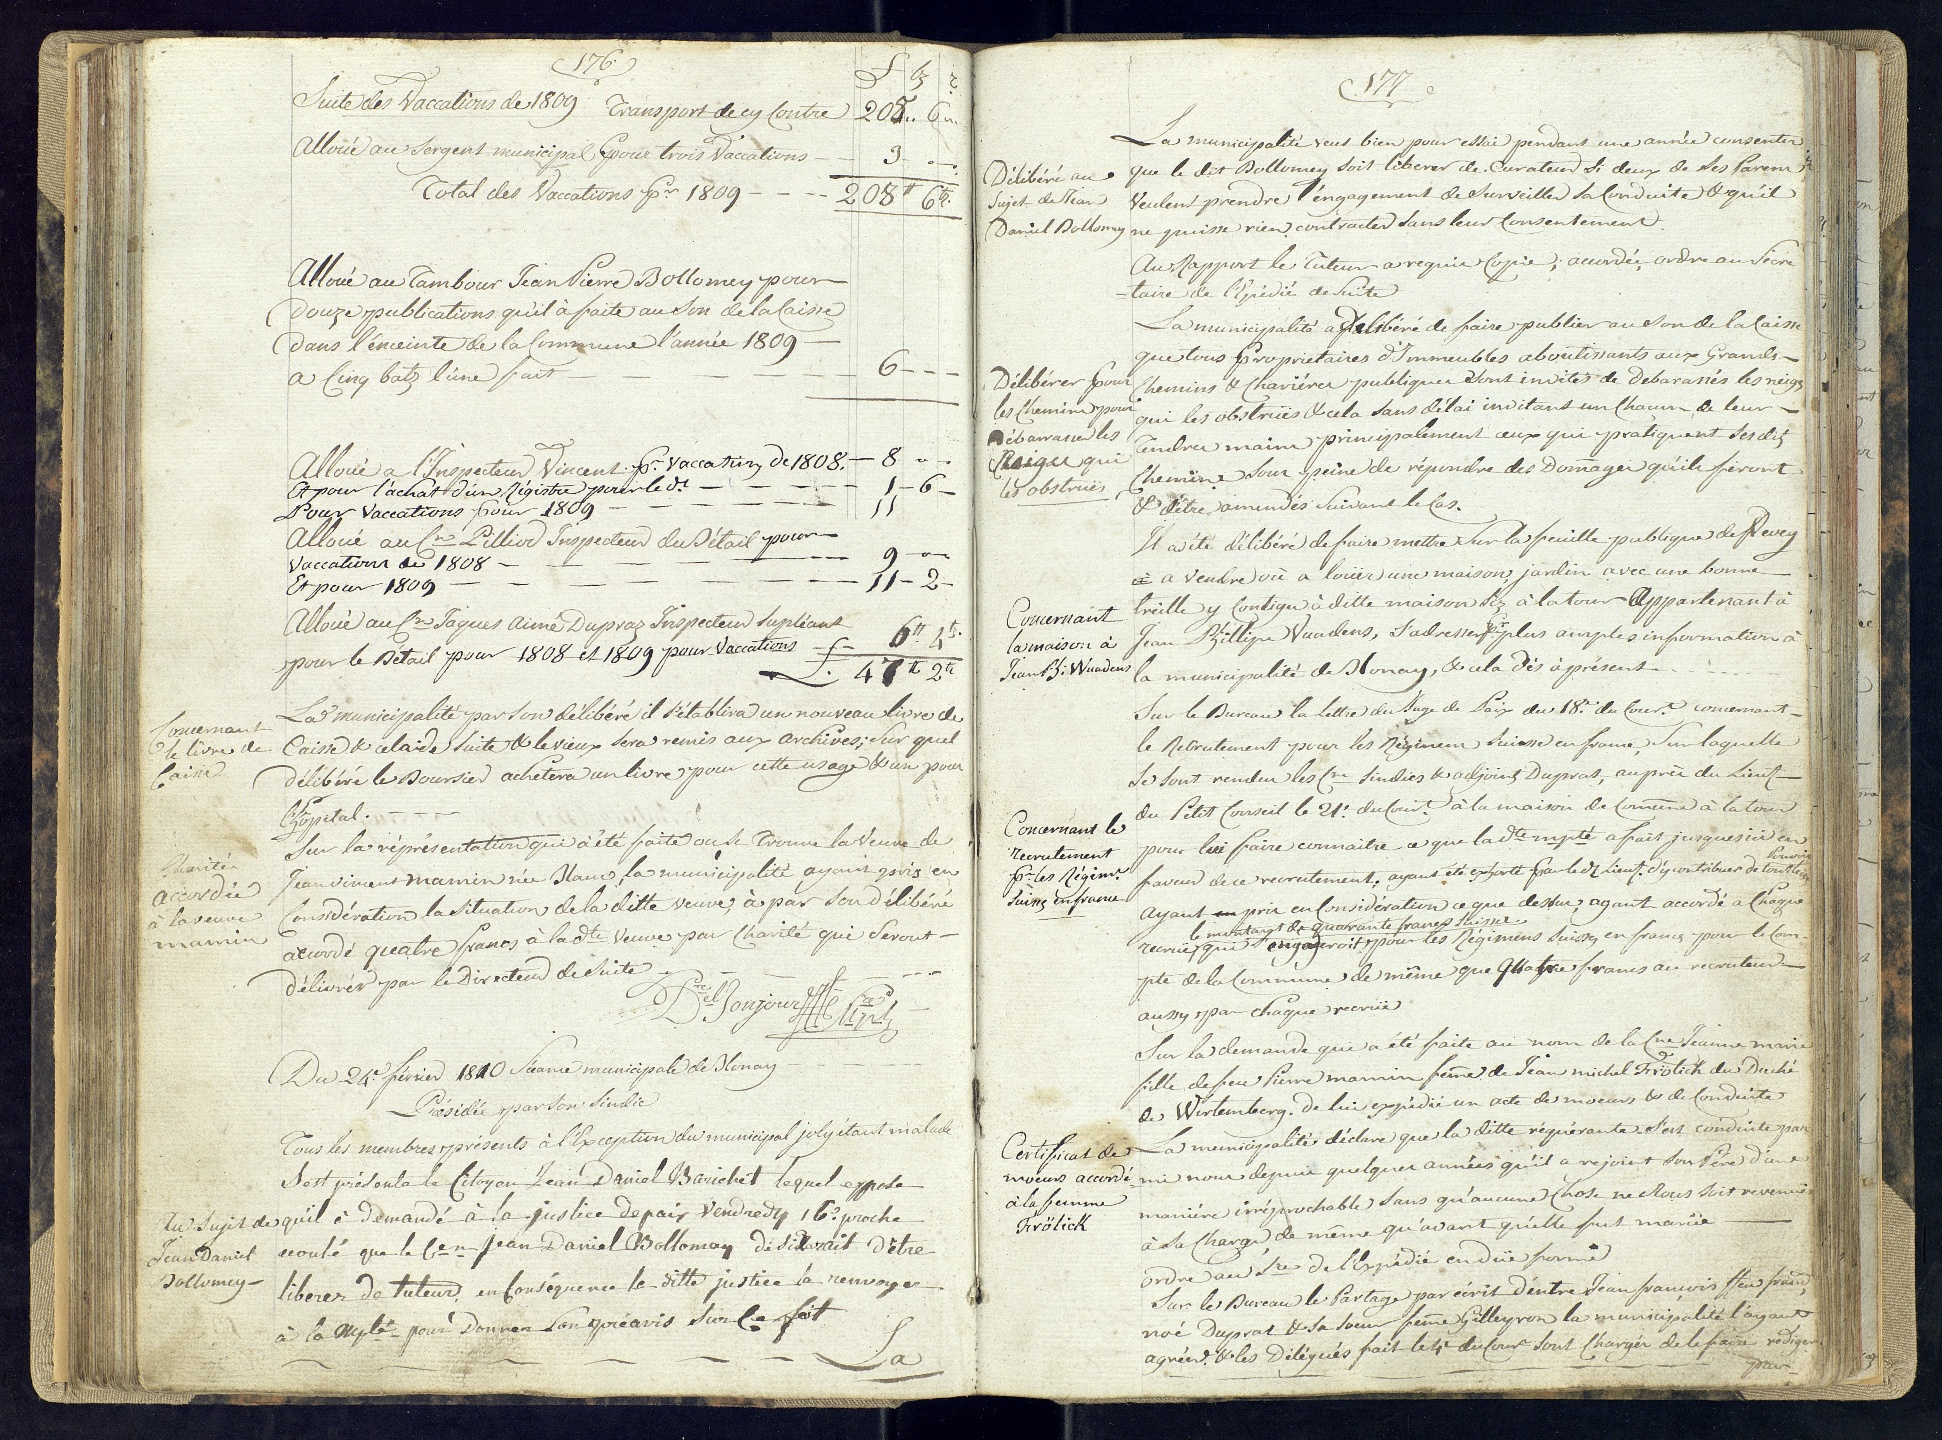 176
£ bz r.
Suite des Vaccations de 1809 Transport de cy Contre 205.. 6..
Alloüé au Sergent municipal pour trois Vaccations — 3 . .
Total des Vaccations pr. 1809 - - - - 208 tt 6 tz.
Alloué au Tambour Jean Pierre Bollomey pour
douze publications qu'il à faite au Son de la Caisse
dans l'énceinte de la Commune l'année 1809 —
a Cinq batz l'une fait — — — — — 6 - - -
Alloué a l'Inspecteur Vincent pr. Vaccations de 1808. — 8 . .
Et pour l'achat d'un Régistre pour le dt. — — — — 1 - 6 -
Pour Vaccations pour 1809 — — — — 11
Alloué au Cn. Pilliod Inspecteur du Détail pour
Vaccations de 1808 — — — — — 9 - . .
Et pour 1809 — — — — — 11 - 2 -
Alloué au Cn. Jaques Aimé Dupraz Inspecteur Supléant
pour le Détail pour 1808 et 1809 pour Vaccations — 6 tt 4 tz.
£. 47 tt 2 tz
Concernant
le livre de
Caisse
La municipalité par son délibéré il s'établira un nouveau livre de
Caisse & cela de Suite & le vieux sera remis aux archives; sur quel
délibéré le Boursier achétera un livre pour cette usage & un pour
l'hôpital. - - - -
Charité
accordée
à la veuve
mamin
Sur la réprésentation qui à été faite ou se trouve la Veuve de
Jean Vincent mamin née Blanc la municipalité ayant pris en
Considération la situation de la ditte veuve, à par son délibéré
accordé quatre francs à la dte. Veuve par Charité qui seront
délivrés par le Directeur de Suite
Del. Bonjour
Du 24e. février 1810 Séance municipale de Blonay
Présidée par son Sindic
Tous les membres présents à l'exception du municipal joly étant malade
Au Sujet de
Jean Daniel
Bollomey —
Sest présenta le Citoyen Jean Daniel Barichet lequel expose
qu'il à demandé à la justice de paix Vendredy 16e. proche
écoulé que le Cen. Jean Daniel Bollomey désirerait d'être
liberer de tuteur, en Conséquence le ditte justice la renvoyer
à la mplté. pour Donner Son préavis Sur Ce fait
La
177
Délibéré au
Sujet de Jean
Daniel Bollomey
La municipalité veut bien pour essai pendant une année consentir
que le dit Bollomey soit liberer de Curateur Si deux de Ses Parens
Veulent prendre l'engagement de Surveiller sa Conduite & qu'il
ne puisse rien contracter sans leur Consentement.
Au Rapport le Tuteur a requis Copie; acordée, ordre au Sécré
=taire de l'Éxpédié de Suite
Délibérer pour
les Chemins pour
Débarrasser les
Neiges qui
les obstrués
La municipalité a Délibéré de faire publier au Son de la Caisse
que tous Proprietaires d'Immeubles aboutissants aux Grands —
Chemins & Chariéres publiques Sont invités de debarassés les neiges
qui les obstrués & cela Sans délai invitant un Chacun de leur —
Tendres mains principalement ceux qui pratiquent ses dits
Chemins Sous peine de répondre des Domages qu'ils féront
& d'être amendés Suivant le Cas.
Concernant
la maison à
Jean Ph: Wuadens
Il a été délibéré de faire mettre Sur la feuille publique de Vevey
a Vendre ou a loüer une maison, jardin avec une bonne
treille y Contigu à ditte maison Siz à la tour Appartenant à
Jean Phillipe Vuadens, S'adresser pr. plus amples information à
la municipalité de Blonay, & cela dès à présent
Concernant le
recrutement
pr. les Régims.
Suisse en france
Sur le Bureau la lettre du Juge de Paix du 18e. du Court. concernant
le Recrutement pour les Régimens Suisse en france Sur laquelle
Se Sont rendus les Cns. Sindics & adjoint Dupras, auprès du Lieut.
du Petit Conseil le 21e. du Court. à la maison de Comune à la tour
pour lui faire connaitre ce que la dte. mplté. a fait jusques ici en
faveur de ce recrutement, ayant été exhorté par le dt. Lieut. d'y contribuer de tout leur
Pouvoir
Ayant pris en Considération ce que dessus, ayant accordé à Chaque
le montant de quarante francs Suisse
recruë qui s'engageroit pour les Régimens Suisse en france pour le Com-
pte de la Commune de même que quatre francs au recruteur
aussy par Chaque recruë
Certificat de
moeurs accordé
à la femme
Frölick
Sur la demande qui a été faite au nom de la Cne. Jeanne marie
fille de feu Pierre mamin feme de Jean michel Frölick du Duché
de Wirtemberg. de lui expédié un acte de moeurs & de Conduite
La municipalité déclare que la ditte requérante s'est conduite par
mi nous depuis quelques années qu'il a rejoint son Père d'une
maniére irréprochable sans qu'aucune Chose ne Nous soit revenuë
à Sa Charge de même qu'avant qu'elle fut mariée
ordre au Sre. de l'Expédié en duë forme
Sur le Bureau le Partage par écrit d'entre Jean françois ffeu
noé Duprat & sa soeur feme Gilleyron la municipalité l'ayant
agréé. & les Délégués fait le 4e. du Cour. sont Chargés de le faire rediger
par